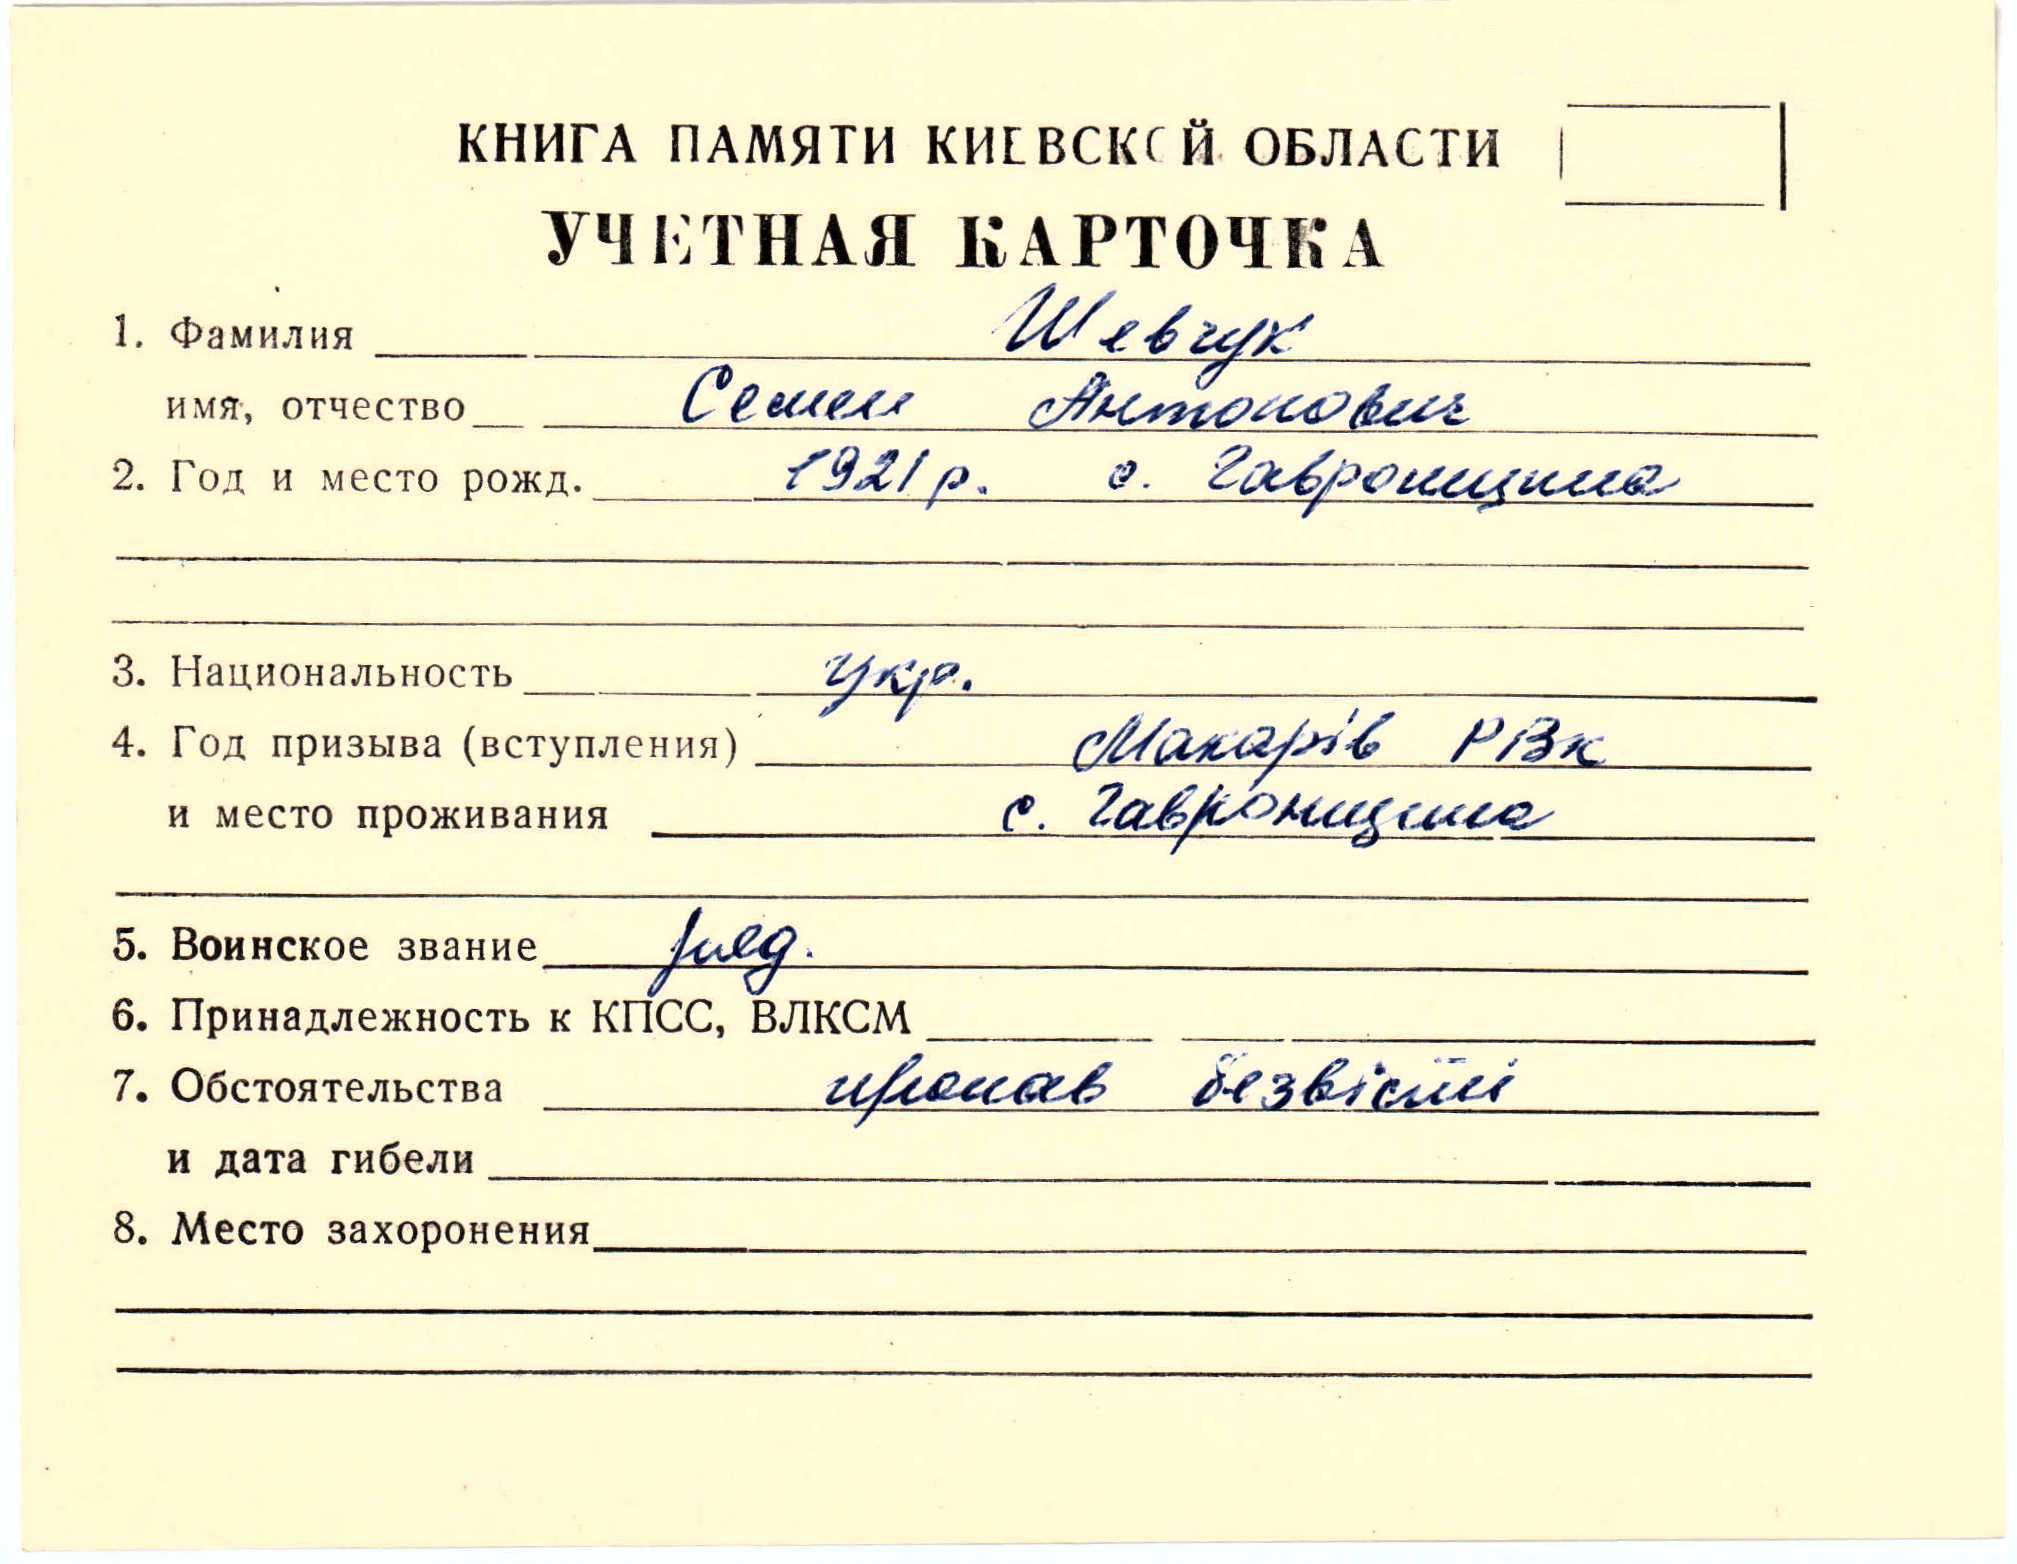 КНИГА ПАМЯТИ КИЕВСКОЙ ОБЛАСТИ
УЧЕТНАЯ КАРТОЧКА
1. Фамилия Шевчук
имя, отчество Семен Антонович
2. Год и место рожд. 1921 р. с. Гавронщина
3. Национальность укр.
4. Год призыва (вступления) Макарів РВК
и место проживания с. Гавронщина
5. Воинское звание ряд.
6. Принадлежность к КПСС, ВЛКСМ
7. Обстоятельства пропав безвісти
и дата гибели
8. Место захоронения